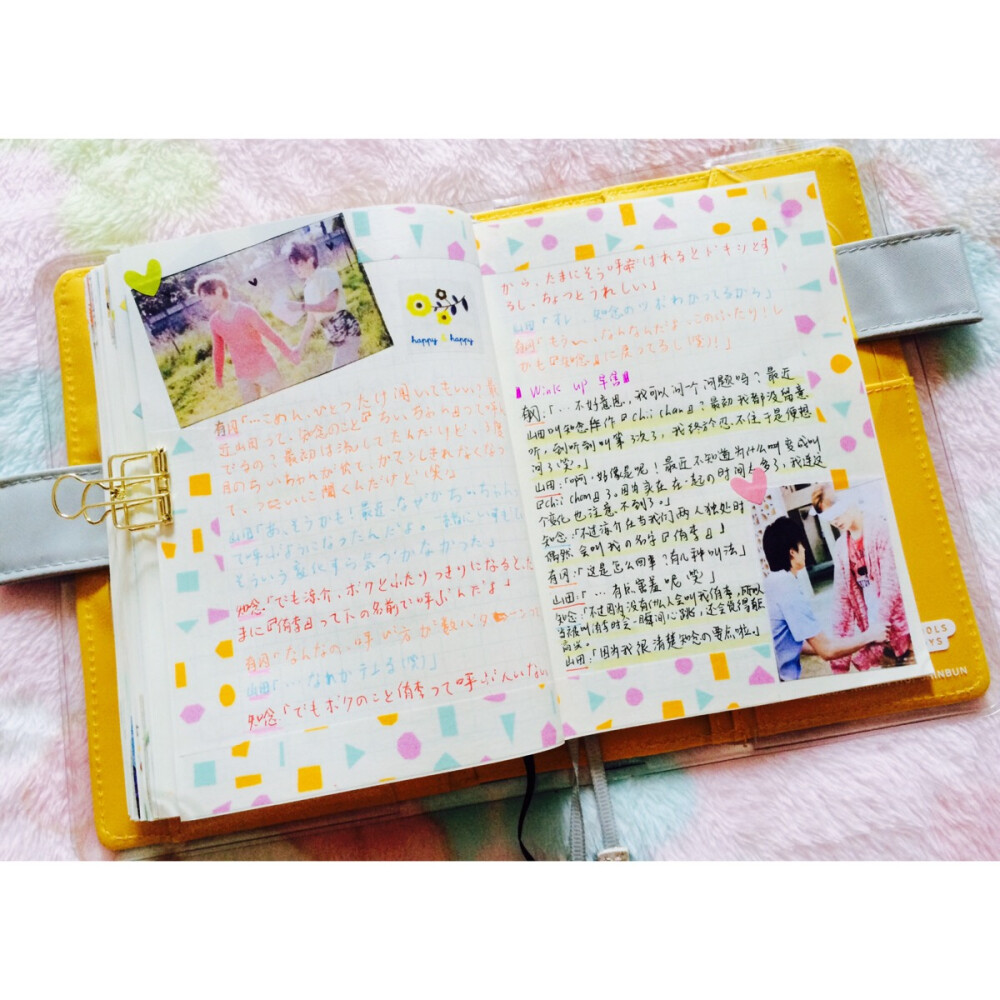 happy & happy
有岡「…ごめん、ひとつだけ聞いてもいい？最
近山田って、知念のこと『ちぃちゃん』って呼ん
でるの？最初は流してたんだけど、3度
目のちぃちゃんが出て、ガマンしきれなくなっ
て、ついに聞くんだけど(笑)」
山田「あ、そうかも！最近、なぜかちぃちゃんっ
て呼ぶようになったんだよ。一緒にい
そういう変化すら気づかなかった」
知念「でも涼介、ボクとふたりっきりになるとた
まに『侑李』って下の名前で呼ぶんだよ」
有岡「なんなの、呼び方が数パターン
山田「…なれがテよる(笑)」
知念「でもボクのこと侑李って呼ぶ人いない
から、たまにそう呼ばれるとドキッとす
るし、ちょっとうれしい」
山田「オレ、知念のツボわかってるから」
有岡「もう〜、なんなんだよ、このふたり！し
かも『知念』に戻ってるし(笑)！」
Wink up
有岡：「…不好意思，我可以问个问题吗？最近
山田叫知念作『Chii chan』？最初我都没留意
听，到听到叫第3次了，我终于忍不住于是便想
问了(笑)」
山田：「啊，好像是呢！最近不知道为什么叫变成叫
『Chii chan』了。因为实在在一起的时间太多了，我连这
个变化也注意不到了。」
知念：「不过凉介在当我们两人独处时
偶然会叫我の名字『侑李』」
有冈：「这是怎么回事？有几种叫法」
山田：「…有点害羞呢(笑)」
知念：「不过因为没有什么人会叫我侑李，所以
当被叫侑李时会一瞬间心跳，还会觉得蛮
高兴。」
山田：「因为我很清楚知念の要点啦。」
OLS
AYS
INBUN